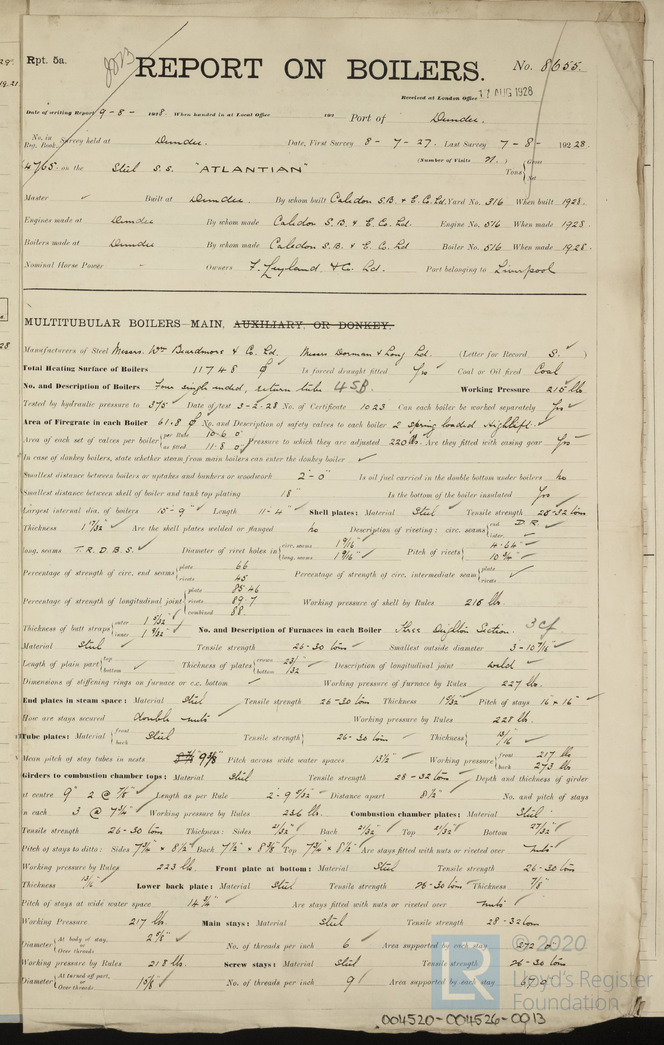 Rpt. 5a.
REPORT ON BOILERS.
No. 8655.
Received at London Office 17 AUG 1928
Date of writing Report 9-8- 1928. When handed in at Local Office 192 Port of Dundee.
No. in Reg. Book. Survey held at Dundee. Date, First Survey 8-7-27. Last Survey 7-8- 1928.
(Number of Visits 71.)
on the Steel S.S. "ATLANTIAN" Tons Gross Net
Master Built at Dundee. By whom built Caledon S.B. & E. Co. Ld. Yard No. 316 When built 1928.
Engines made at Dundee By whom made Caledon S.B. & E. Co. Ld. Engine No. 516 When made 1928.
Boilers made at Dundee By whom made Caledon S.B. & E. Co. Ld Boiler No. 516 When made 1928.
Nominal Horse Power - Owners F. Leyland & Co. Ld. Port belonging to Liverpool
MULTITUBULAR BOILERS MAIN, AUXILIARY, OR DONKEY.
Manufacturers of Steel Messrs. Wm Beardmore & Co. Ld. Messrs Dorman & Long Ld. (Letter for Record S.)
Total Heating Surface of Boilers 11748 Is forced draught fitted Yes Coal or Oil fired Coal
No. and Description of Boilers Four single ended, return tube 4SB Working Pressure 215 lbs.
Tested by hydraulic pressure to 375 Date of test 3-2-28 No. of Certificate 1023 Can each boiler be worked separately Yes
Area of Firegrate in each Boiler 61.8 No. and Description of safety valves to each boiler 2 spring loaded highlift.
Area of each set of valves per boiler per Rule 10-6 as fitted 11-8 Pressure to which they are adjusted 220 lbs. Are they fitted with easing gear Yes
In case of donkey boilers, state whether steam from main boilers can enter the donkey boiler
Smallest distance between boilers or uptakes and bunkers or woodwork 2'-0" Is oil fuel carried in the double bottom under boilers no
Smallest distance between shell of boiler and tank top plating 18" Is the bottom of the boiler insulated Yes
Largest internal dia. of boilers 15'-9" Length 11'-4" Shell plates: Material Steel Tensile strength 28-32 tons
Thickness 1 17/32" Are the shell plates welded or flanged no Description of riveting: circ. seams end D.R. inter.
long. seams T.R.D.B.S. Diameter of rivet holes in circ. seams 1 9/16" long. seams 1 9/16" Pitch of rivets 4.64" 10 3/4"
Percentage of strength of circ. end seams plate 66 rivets 45 Percentage of strength of circ. intermediate seam plate rivets
Percentage of strength of longitudinal joint plate 85.46 rivets 89.7 combined 88. Working pressure of shell by Rules 216 lbs.
Thickness of butt straps outer 1 5/32" inner 1 9/32" No. and Description of Furnaces in each Boiler Three Deighton Section. 3cf
Material Steel Tensile strength 26-30 tons Smallest outside diameter
Length of plain part top bottom Thickness of plates crown bottom 23/32 Description of longitudinal joint weld
Dimensions of stiffening rings on furnace or c.c. bottom Working pressure of furnace by Rules 227 lbs.
End plates in steam space: Material Steel Tensile strength 26-30 tons Thickness 1 9/32" Pitch of stays 16 x 16"
How are stays secured double nuts Working pressure by Rules 228 lbs.
Tube plates: Material front back Steel Tensile strength 26-30 tons Thickness 13/16
Mean pitch of stay tubes in nests 9 3/8" Pitch across wide water spaces 13 1/2" Working pressure front 217 lbs back 273 lbs
Girders to combustion chamber tops: Material Steel Tensile strength 28-32 tons Depth and thickness of girder
at centre 9" 2 @ 7/8" Length as per Rule 2'-9 9/32" Distance apart 8 1/2" No. and pitch of stays
in each 3 @ 7 3/4" Working pressure by Rules 236 lbs. Combustion chamber plates: Material Steel
Tensile strength 26-30 tons Thickness: Sides 21/32" Back 21/32" Top 21/32" Bottom 27/32"
Pitch of stays to ditto: Sides 7 3/4" x 8 1/2" Back 7 1/2" x 8 3/8" Top 7 3/4" x 8 1/2" Are stays fitted with nuts or riveted over nuts
Working pressure by Rules 223 lbs. Front plate at bottom: Material Steel Tensile strength 26-30 tons
Thickness 13/16" Lower back plate: Material Steel Tensile strength 26-30 tons Thickness 7/8"
Pitch of stays at wide water space 14 3/4" Are stays fitted with nuts or riveted over nuts
Working Pressure 217 lbs. Main stays: Material Steel Tensile strength 28-32 tons
Diameter At body of stay, or Over threads 2 7/8" No. of threads per inch 6 Area supported by each stay 272
Working pressure by Rules 218 lbs. Screw stays: Material Steel Tensile strength 26-30 tons
Diameter At turned off part, or Over threads 1 5/8" No. of threads per inch 9 Area supported by each stay 67.9
© 2020
Lloyd's Register
Foundation
004520-004526-0013